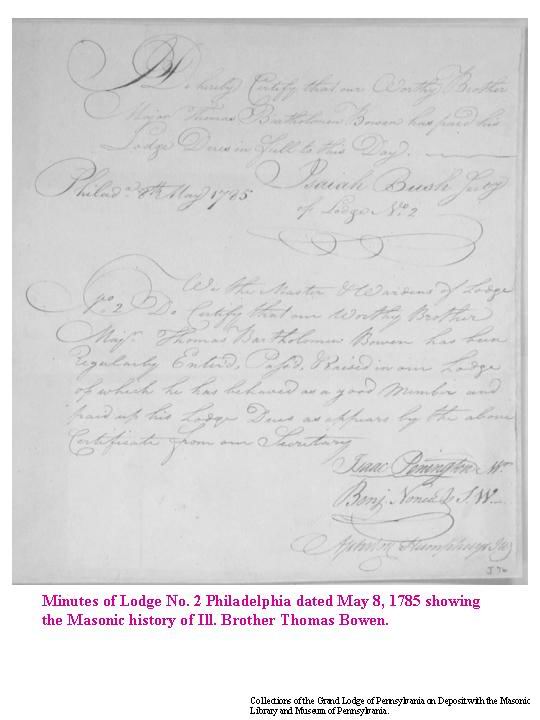 I Do hereby Certify that our Worthy Brother
Major Thomas Bartholomew Bowen has paid his
Lodge Dues in full to this Day.
Philad.ª 8th May 1785
Isaiah Bush Secy
of Lodge No. 2
We the Master & Wardens of Lodge
No. 2 Do Certify that our Worthy Brother
Majr. Thomas Bartholomew Bowen has been
Regularly Enterd, Pass'd, & Raised in our Lodge
of which he has behaved as a good Member and
paid up his Lodge Dues as appears by the above
Certificate from our Secretary
Isaac Penington Mr.
Benj. Nones S.W.
Ashton Humphreys J.W.
J 70
Minutes of Lodge No. 2 Philadelphia dated May 8, 1785 showing
the Masonic history of Ill. Brother Thomas Bowen.
Collections of the Grand Lodge of Pennsylvania on Deposit with the Masonic
Library and Museum of Pennsylvania.